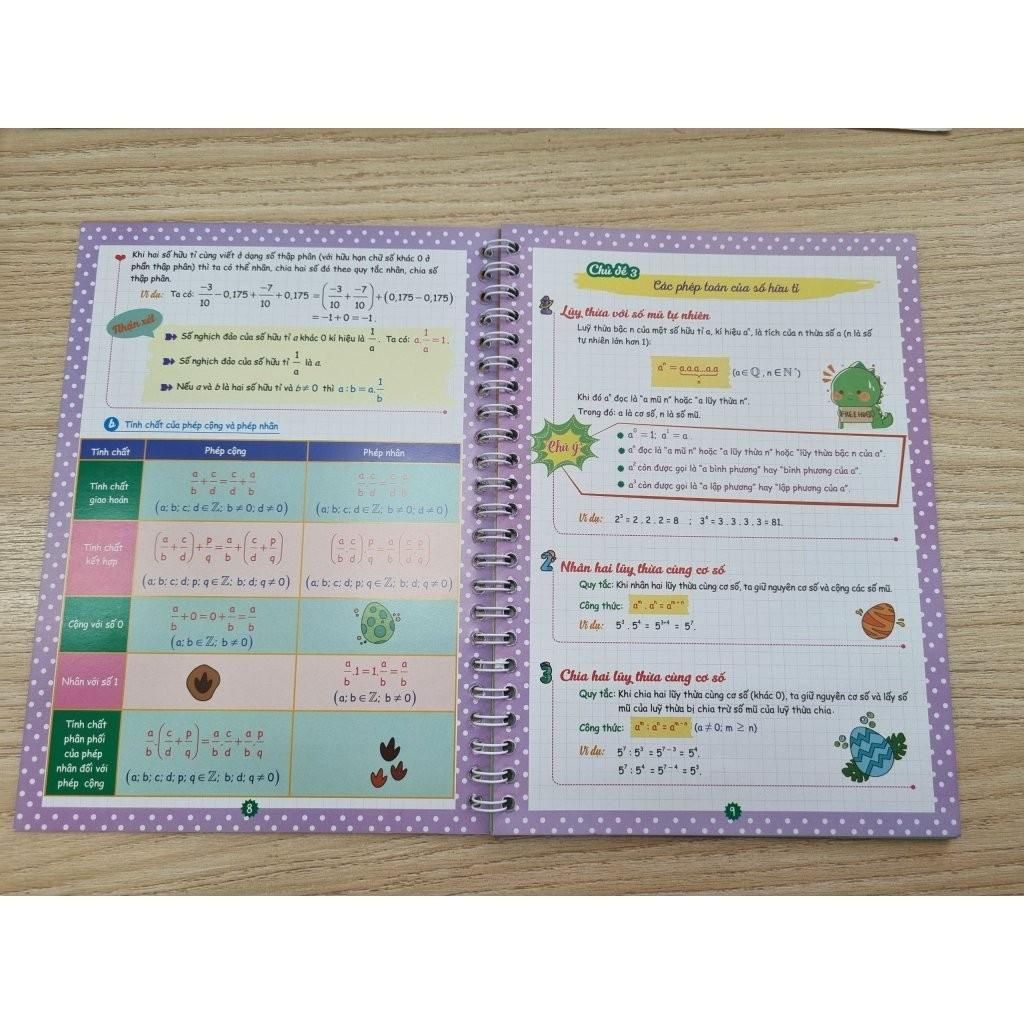 Khi hai số hữu tỉ cùng viết ở dạng số thập phân (với hữu hạn chữ số khác 0 ở
phần thập phân) thì ta có thể nhân, chia hai số đó theo quy tắc nhân, chia số
thập phân.
Ví dụ: Ta có: -3/10 - 0,175 + -7/10 + 0,175 = (-3/10 + -7/10) + (0,175 - 0,175)
= -1 + 0 = -1.
Nhận xét
Số nghịch đảo của số hữu tỉ a khác 0 kí hiệu là 1/a. Ta có: a.1/a = 1.
Số nghịch đảo của số hữu tỉ 1/a là a.
Nếu a và b là hai số hữu tỉ và b ≠ 0 thì a : b = a.1/b
b Tính chất của phép cộng và phép nhân
Tính chất Phép cộng Phép nhân
Tính chất giao hoán
a/b + c/d = c/d + a/b
(a; b; c; d ∈ ℤ; b ≠ 0; d ≠ 0)
a/b . c/d = c/d . a/b
(a; b; c; d ∈ ℤ; b ≠ 0; d ≠ 0)
Tính chất kết hợp
(a/b + c/d) + p/q = a/b + (c/d + p/q)
(a; b; c; d; p; q ∈ ℤ; b; d; q ≠ 0)
(a/b . c/d) . p/q = a/b . (c/d . p/q)
(a; b; c; d; p; q ∈ ℤ; b; d; q ≠ 0)
Cộng với số 0
a/b + 0 = 0 + a/b = a/b
(a; b ∈ ℤ; b ≠ 0)
Nhân với số 1
a/b . 1 = 1 . a/b = a/b
(a; b ∈ ℤ; b ≠ 0)
Tính chất
phân phối
của phép
nhân đối với
phép cộng
a/b . (c/d + p/q) = a/b . c/d + a/b . p/q
(a; b; c; d; p; q ∈ ℤ; b; d; q ≠ 0)
8
Chủ đề 3
Các phép toán của số hữu tỉ
1 Lũy thừa với số mũ tự nhiên
Luỹ thừa bậc n của một số hữu tỉ a, kí hiệu aⁿ, là tích của n thừa số a (n là số
tự nhiên lớn hơn 1):
aⁿ = a.a.a...a.a (a ∈ ℚ, n ∈ ℕ*)
n
Khi đó aⁿ đọc là "a mũ n" hoặc "a lũy thừa n".
Trong đó: a là cơ số, n là số mũ.
FREE HUG
Chú ý
a⁰ = 1; a¹ = a.
aⁿ đọc là "a mũ n" hoặc "a lũy thừa n" hoặc "lũy thừa bậc n của a".
a² còn được gọi là "a bình phương" hay "bình phương của a".
a³ còn được gọi là "a lập phương" hay "lập phương của a".
Ví dụ: 2³ = 2 . 2 . 2 = 8 ; 3⁴ = 3 . 3 . 3 . 3 = 81.
2 Nhân hai lũy thừa cùng cơ số
Quy tắc: Khi nhân hai lũy thừa cùng cơ số, ta giữ nguyên cơ số và cộng các số mũ.
Công thức:
Ví dụ: 5³ . 5⁴ = 5³⁺⁴ = 5⁷.
3 Chia hai lũy thừa cùng cơ số
Quy tắc: Khi chia hai lũy thừa cùng cơ số (khác 0), ta giữ nguyên cơ số và lấy số
mũ của luỹ thừa bị chia trừ số mũ của luỹ thừa chia.
Công thức: aᵐ : aⁿ = aᵐ⁻ⁿ (a ≠ 0; m ≥ n)
Ví dụ: 5⁷ : 5³ = 5⁷⁻³ = 5⁴.
5⁷ : 5⁴ = 5⁷⁻⁴ = 5³.
9